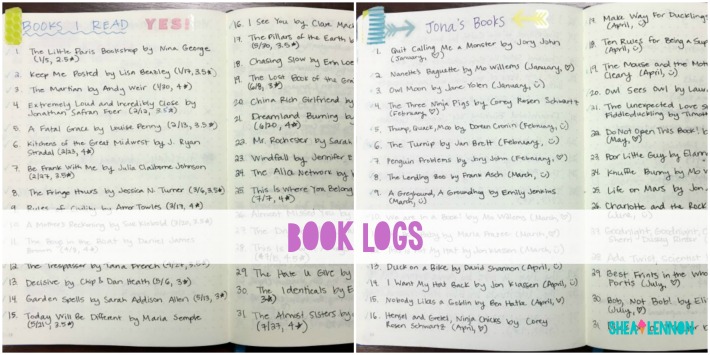 BOOKS I READ YES!
1. The Little Paris Bookshop by Nina George
(1/5, 2.5★)
2. Keep Me Posted by Lisa Beazley (1/17, 3.5★)
3. The Martian by Andy Weir (1/20, 4★)
4. Extremely Loud and Incredibly Close by
Jonathan Safran Foer (2/12, 3.5★)
5. A Fatal Grace by Louise Penny (2/13, 3.5★)
6. Kitchens of the Great Midwest by J. Ryan
Stradal (2/23, 4★)
7. Be Frank With Me by Julia Claiborne Johnson
8. The Fringe Hours by Jessica N. Turner (3/6, 3.5★)
9. Rules of Civility by Amor Towles (3/19, 4★)
10. A Mother's Reckoning by Sue Klebold
11. The Boys in the Boat by Daniel James
Brown
12. The Trespasser by Tana French
13. Decisive by Chip & Dan Heath (5/6, 3★)
14. Garden Spells by Sarah Addison Allen (5/13, 3★)
15. Today Will Be Different by Maria Semple
(5/21, 3.5★)
16. I See You by Clare Mack
17. The Pillars of the Earth b
(5/20, 3.5★)
18. Chasing Slow by Erin Loe
19. The Lost Book of the Gra
(6/8, 3★)
20. China Rich Girlfriend by
21. Dreamland Burning by
(6/20, 4★)
22. Mr. Rochester by Sarah
23. Windfall by Jennifer E
24. The Alice Network by K
25. This Is Where You Belong
(7/7, 4★)
29. The Hate U Give by
30. The Identicals by E
3★)
31. The Almost Sisters by
(7/27, 4★)
Jona's Books
1. Quit Calling Me a Monster by Jory John
(January, ☺)
2. Nanette's Baguette by Mo Willems (January, ♡)
3. Owl Moon by Jane Yolen (January, ☺)
4. The Three Ninja Pigs by Corey Rosen Schwartz
(February, ♡)
5. Thump, Quack, Moo by Doreen Cronin (February, ☺)
6. The Turnip by Jan Brett (February, ☺)
7. Penguin Problems by Jory John (February, ♡)
8. The Lending Zoo by Frank Asch (March, ☺)
9. A Greyhound, A Groundhog by Emily Jenkins
(March, ☺)
10. We are in a Book! by Mo Willems (March, ♡)
My Hat by Jon Klassen (March, ☺)
13. Duck on a Bike by David Shannon (April, ☺)
14. I Want My Hat Back by Jon Klassen (April, ☺)
15. Nobody Likes a Goblin by Ben Hatke (April, ♡)
16. Hensel and Gretel, Ninja Chicks by Corey
Rosen Schwartz (April, ♡)
17. Make Way For Duckling
(April, ☺)
18. Ten Rules for Being a Sup
(April, ☺)
19. The Mouse and the Mot
Cleary (April, ☺)
20. Owl Sees Owl by Lau
21. The Unexpected Love S
Fiddleduckling by Timot
22. Do Not Open This Book! b
(May, ♡)
23. Poor Little Guy by Elann
24. Knuffle Bunny by Mo W
25. Life on Mars by Jon
26. Charlotte and the Rock
29. Best Frints in the Who
Portis (July, ♡)
30. Bob, Not Bob! by Eli
(July, ♡)
31.
BOOK LOGS
SHEA LENNON